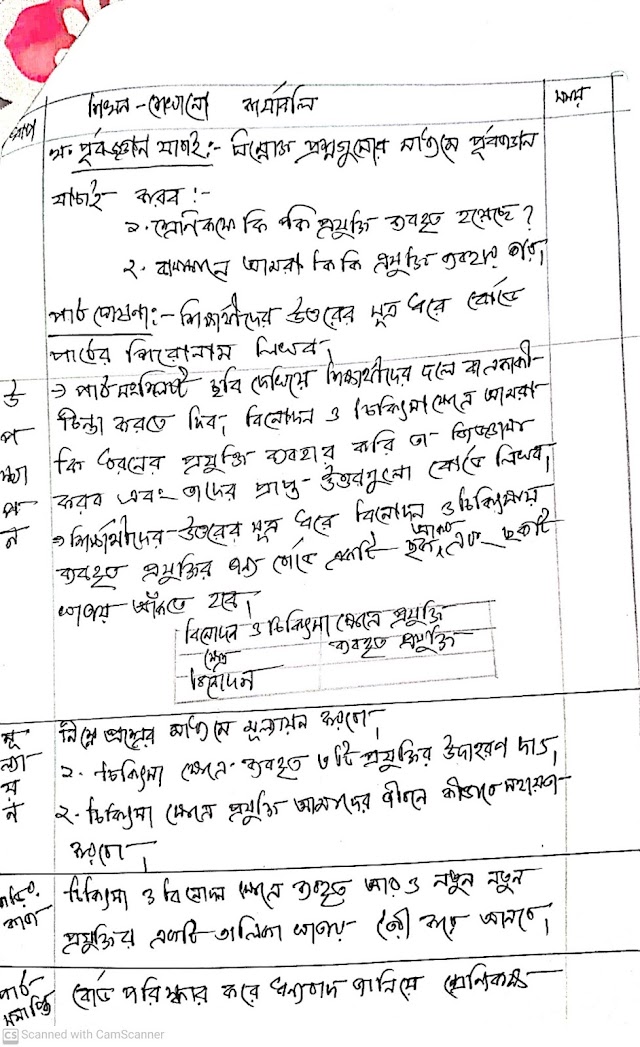 ধাপ শিখন-শেখানো কার্যাবলি সময়
পূর্বজ্ঞান যাচাই:- নিম্নোক্ত প্রশ্নগুলোর মাধ্যমে পূর্বজ্ঞান
যাচাই করব :-
১. শ্রেণিকক্ষে কি কি প্রযুক্তি ব্যবহৃত হয়েছে?
২. আমরা কি কি প্রযুক্তি ব্যবহার করি।
পাঠ ঘোষনা:- শিক্ষার্থীদের উত্তরের সূত্র ধরে বোর্ডে
পাঠের শিরোনাম লিখব।
উপস্থাপন
→ পাঠ সংশ্লিষ্ট ছবি দেখিয়ে শিক্ষার্থীদের দলে
চিন্তা করতে দিব। বিনোদন ও চিকিৎসা ক্ষেত্রে আমরা
কি ধরনের প্রযুক্তি ব্যবহার করি তা জিজ্ঞাসা
করব এবং তাদের প্রাপ্ত উত্তরগুলো বোর্ডে লিখব।
→ শিক্ষার্থীদের উত্তরের সূত্র ধরে বিনোদন ও চিকিৎসায়
ব্যবহৃত প্রযুক্তির জন্য বোর্ডে একটি ছক এবং ছকটি
খাতায় আঁকতে হবে।
বিনোদন ও চিকিৎসা ক্ষেত্রে প্রযুক্তি
ক্ষেত্র ব্যবহৃত প্রযুক্তি
বিনোদন
মূল্যায়ন
নিম্নে প্রশ্নের মাধ্যমে মূল্যায়ন করবো।
১. চিকিৎসা ক্ষেত্রে ব্যবহৃত ৩টি প্রযুক্তির উদাহরণ দাও।
২. চিকিৎসা ক্ষেত্রে প্রযুক্তি আমাদের জীবনে কীভাবে সহায়তা
করবে।
চিকিৎসা ও বিনোদন ক্ষেত্রে ব্যবহৃত আরও নতুন নতুন
প্রযুক্তির একটি তালিকা খাতায় তৈরী করে আনবে।
পাঠ সমাপ্তি
বোর্ড পরিষ্কার করে ধন্যবাদ জানিয়ে শ্রেণিকক্ষ
CS Scanned with CamScanner